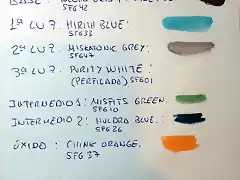 SFG42
1ª LUZ: HIRITH BLUE:
SFG33
2ª LUZ: MISKATONIC GREY:
SFG47
3ª LUZ: PURITY WHITE:
(PERFILADO) SFG01
INTERMEDIO 1: MISFITS GREEN.
SFG10
INTERMEDIO 2: HULDRA BLUE:
SFG26
ÓXIDO: CHINK ORANGE.
SFG37